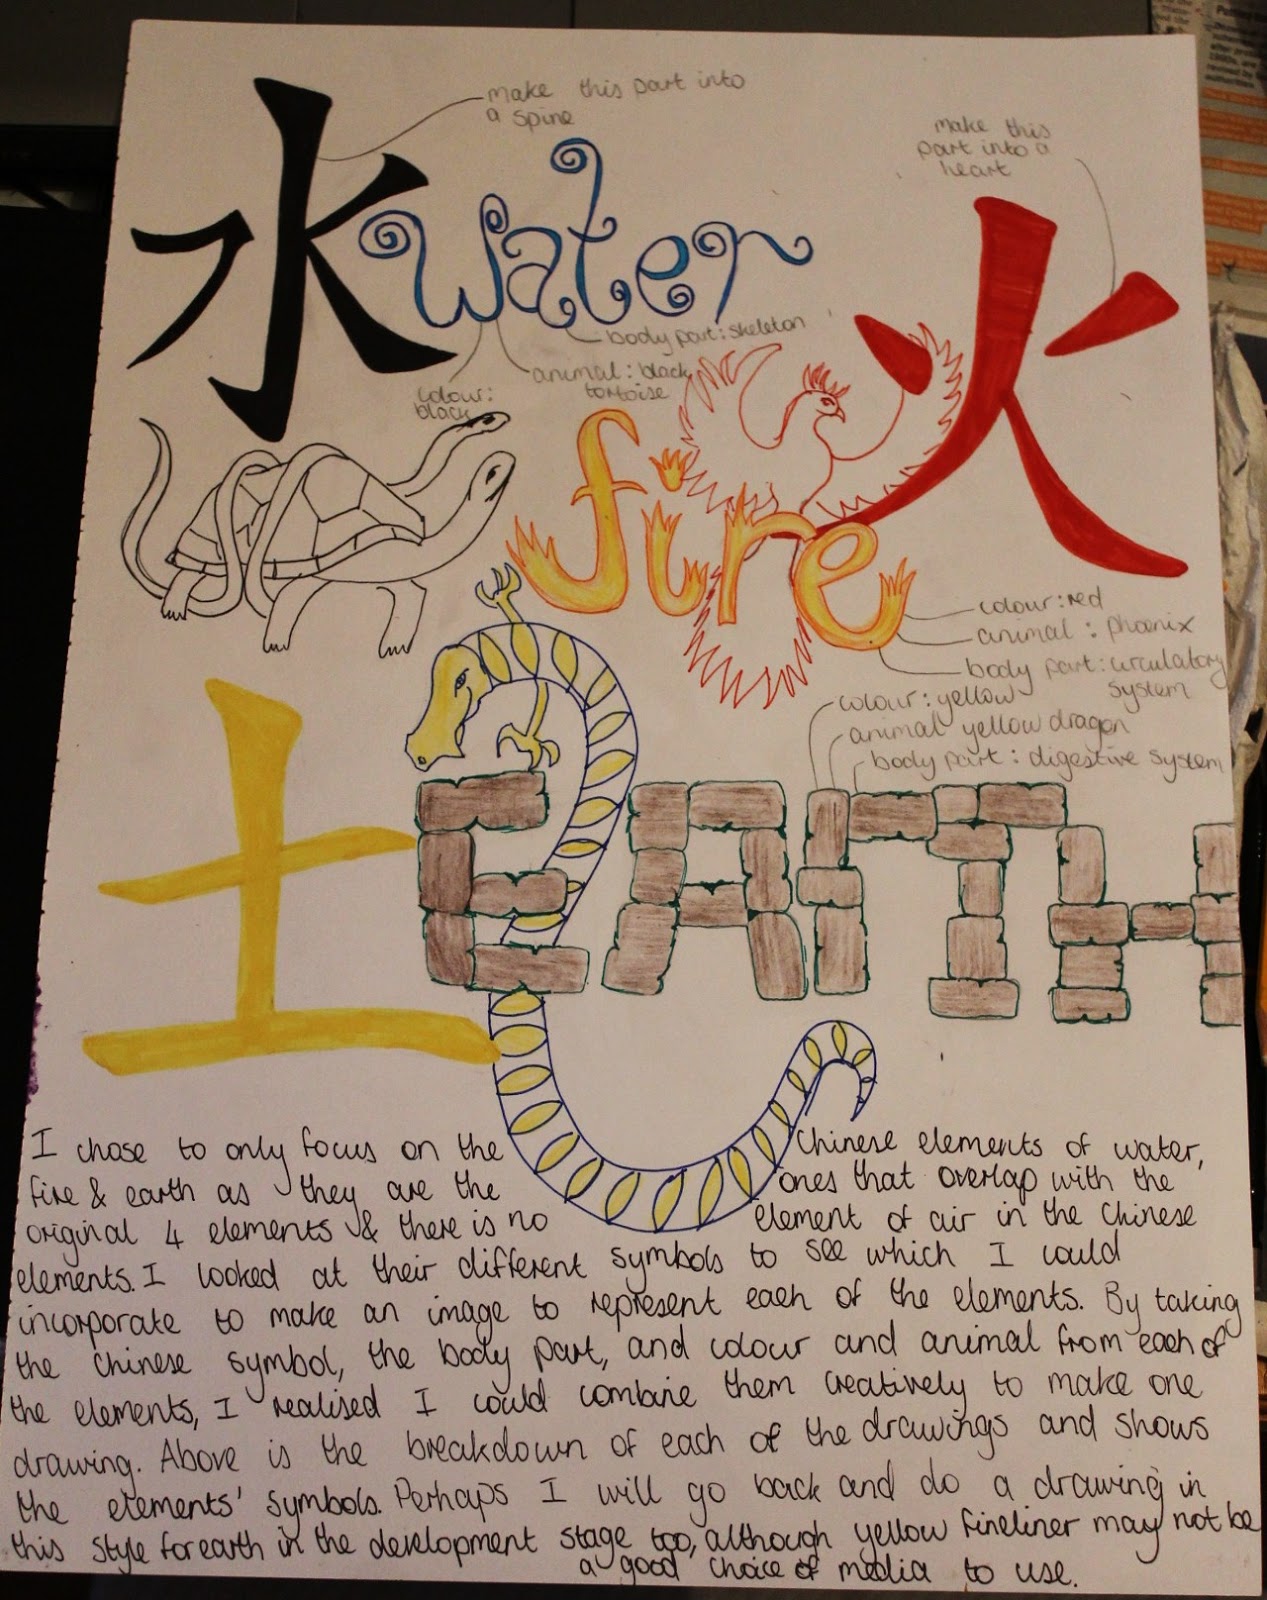 水
make this part into
a spine
water
colour:
black
animal: black
tortoise
body part: skeleton
make this
part into a
heart
火
fire
colour: red
animal: phoenix
body part: circulatory
system
土
colour: yellow
animal yellow dragon
body part: digestive system
EARTH
I chose to only focus on the Chinese elements of water,
fire & earth as they are the ones that overlap with the
original 4 elements & there is no element of air in the Chinese
elements. I looked at their different symbols to see which I could
incorporate to make an image to represent each of the elements. By taking
the Chinese symbol, the body part, and colour and animal from each of
the elements, I realised I could combine them creatively to make one
drawing. Above is the breakdown of each of the drawings and shows
the elements' symbols. Perhaps I will go back and do a drawing in
this style for earth in the development stage too, although yellow fineliner may not be
a good choice of media to use.